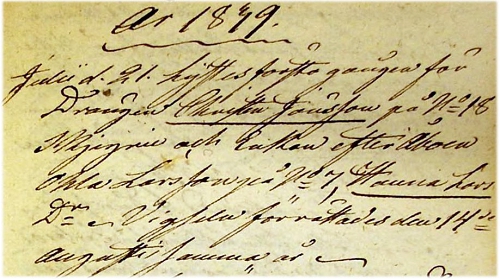 År 1849.
Julii d. 21. lystes första gången för
Drängen Christen Jönsson på No 18
och Enkan efter Åboen
Ohla Larsson på No 7, Hanna Lars
Dr. Vigseln förrättades den 14de
augusti samma år